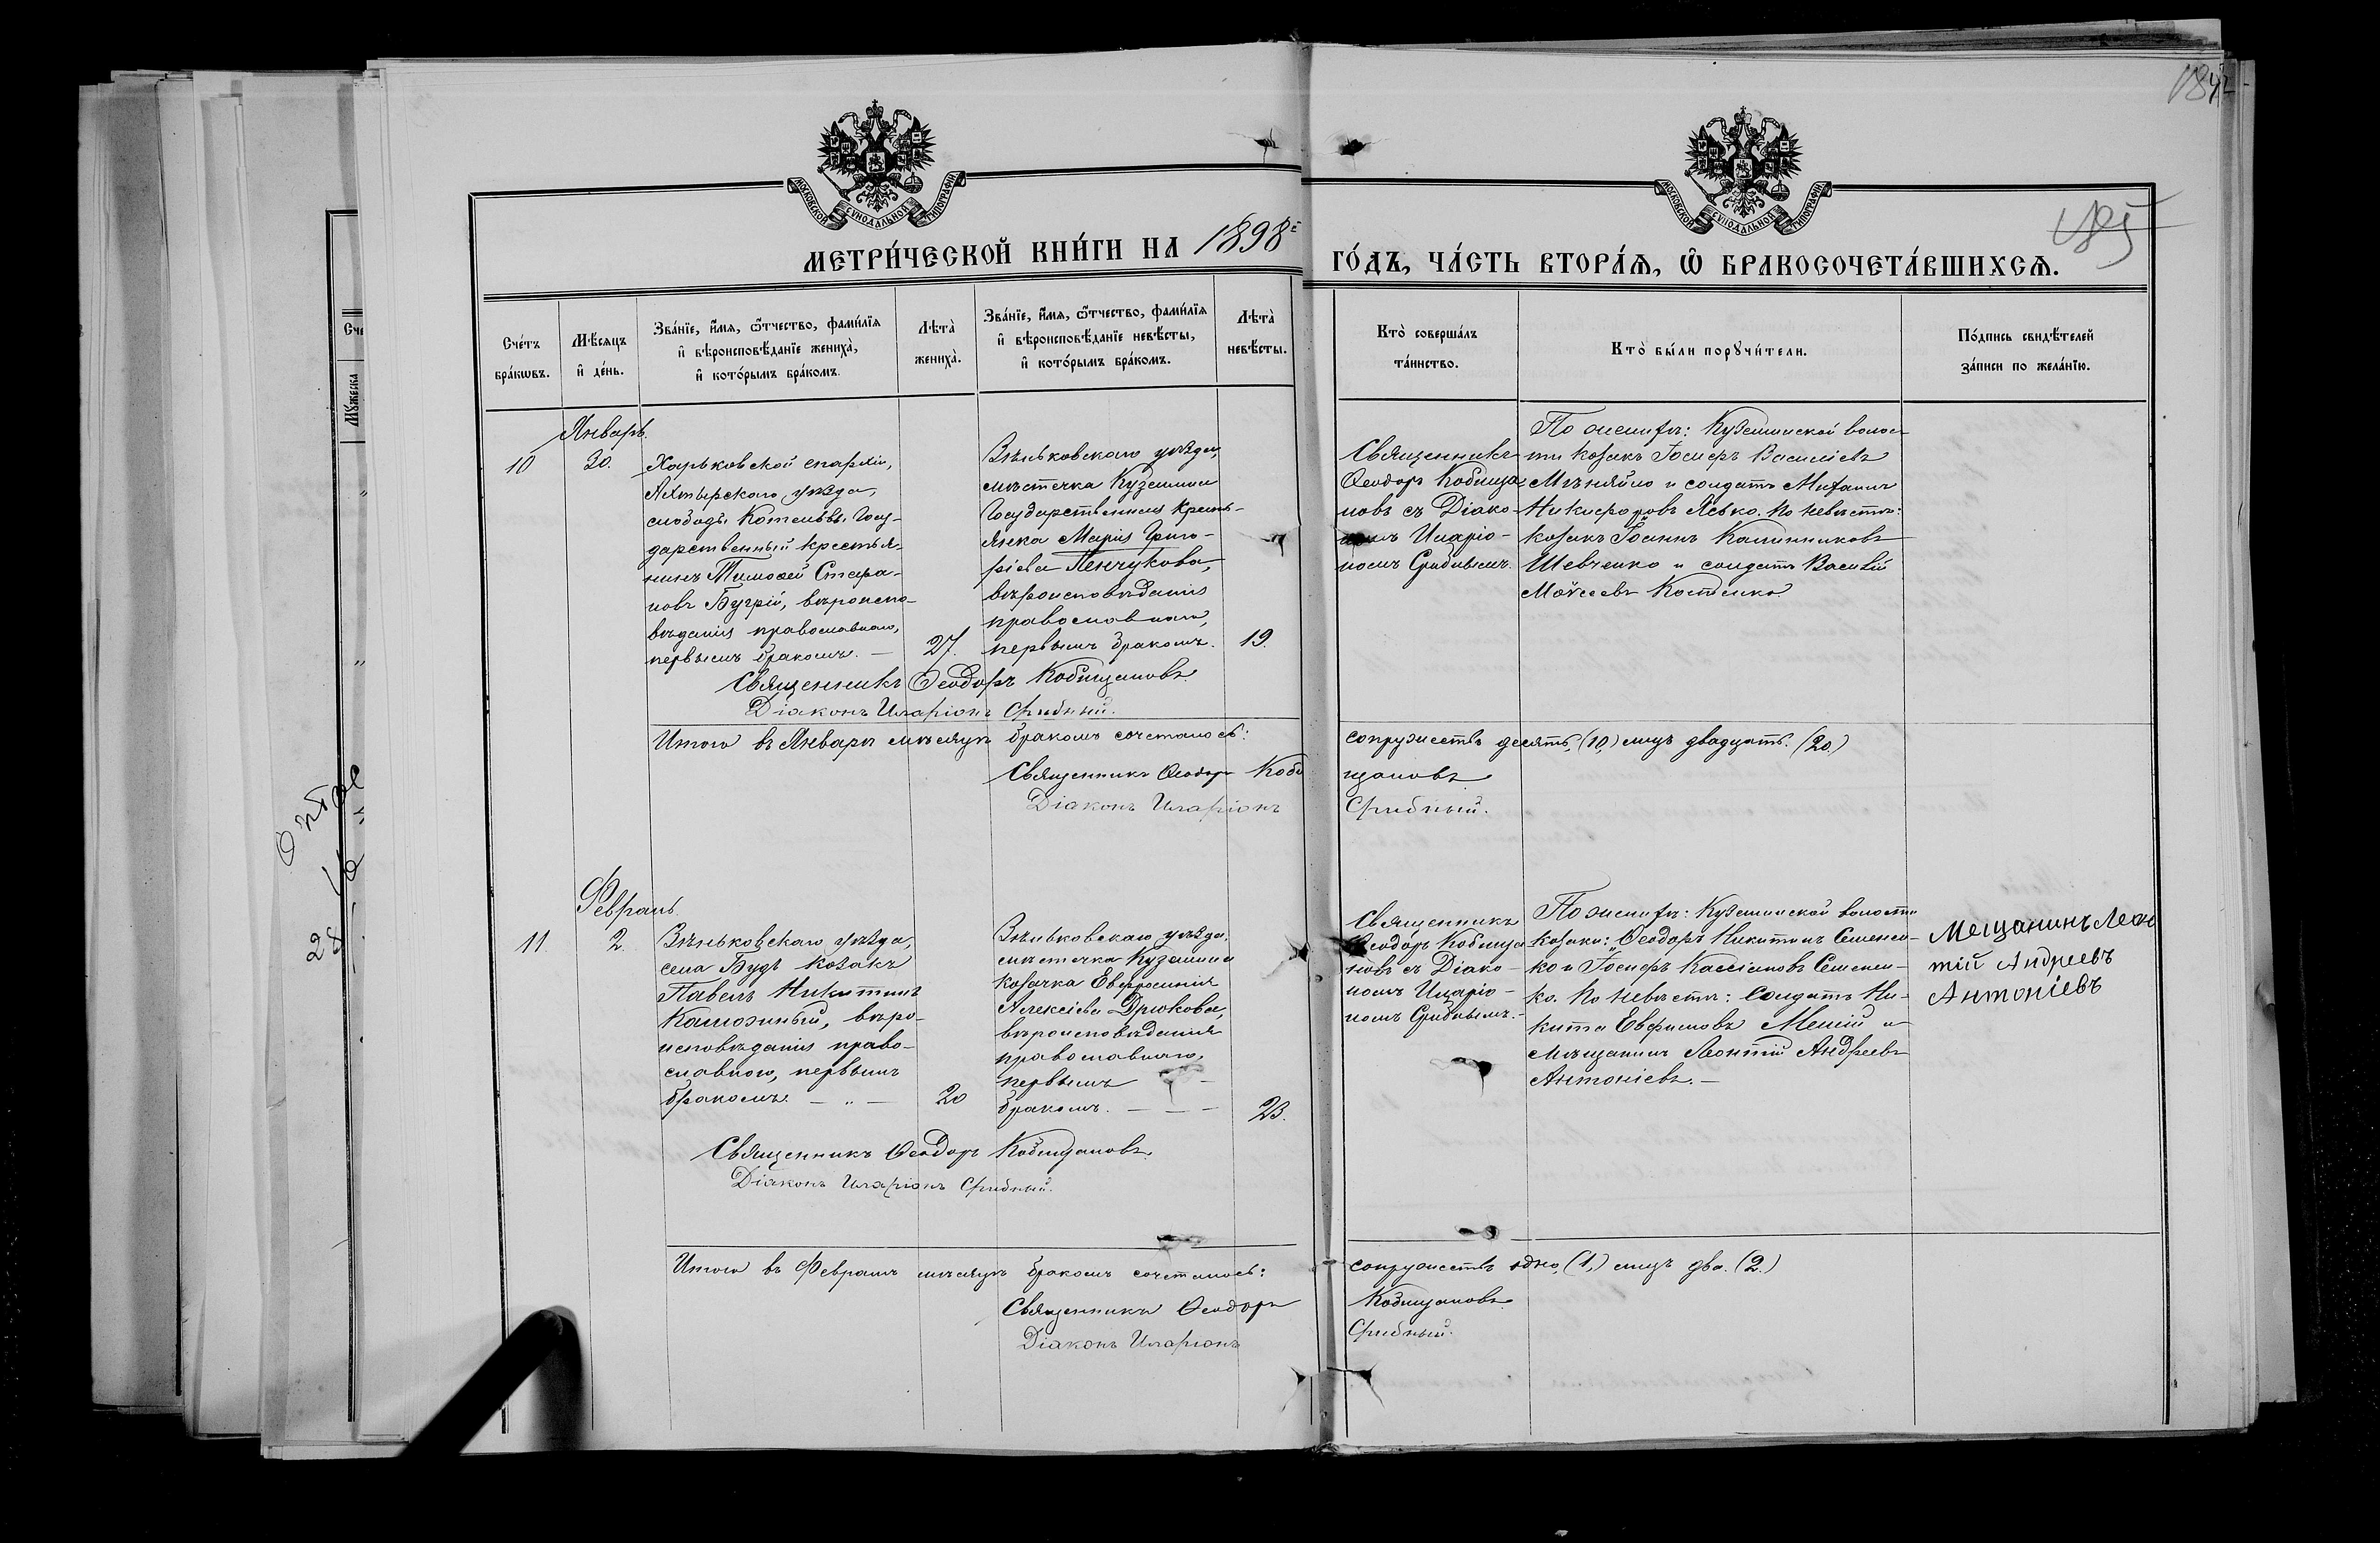 184
185
МОСКОВСКОЙ СУНОДАЛЬНОЙ ТИПОГРАФІИ
МОСКОВСКОЙ СУНОДАЛЬНОЙ ТИПОГРАФІИ
МЕТРИ́ЧЕСКОЙ КНИ́ГИ НА 1898 ГО́ДЪ, ЧА́СТЬ ВТОРА́Ѧ, Ѡ҆ БРАКОСОЧЕТА́ВШИХСѦ.
Сче́тъ бра́кѡвъ.
Мѣ́сяцъ и҆ де́нь.
Зва́нїе, и҆́мѧ, ѻ҆́тчество, фами́лїѧ и҆ вѣроисповѣ́данїе жениха̀, и҆ кото́рымъ бра́комъ.
Лѣта̀ жениха̀.
Зва́нїе, и҆́мѧ, ѻ҆́тчество, фами́лїѧ и҆ вѣроисповѣ́данїе невѣ́сты, и҆ кото́рымъ бра́комъ.
Лѣта̀ невѣ́сты.
Кто̀ соверша́лъ та́инство.
Кто̀ бы́ли порꙋчи́тели.
По́дпись свидѣ́телей за́писи по жела́нїю.
Январь.
10
30.
Харьковской епархіи,
Ахтырскаго уѣзда,
слободы Котельвы Госу-
дарственный крестья-
нинъ Тимоѳей Стефа-
новъ Бугрій, вѣроиспо-
вѣданія православнаго,
первымъ бракомъ. —
27.
Зѣньковскаго уѣзда,
мѣстечка Куземина
Государственная кресть-
янка Марія Григо-
ріева Пенчукова,
вѣроисповѣданія
православнаго,
первымъ бракомъ.
19.
Священникъ
Ѳеодоръ Кобища
новъ съ Діако-
номъ Иларіо-
номъ Срибнымъ.
По женихѣ: Куземинской волос
ти козакъ Іосифъ Василіевъ
и солдатъ
Никифоровъ Лѣвко. По невѣстѣ:
козакъ Іоаннъ Калинниковъ
Шевченко и солдатъ Василій
Моѵсеевъ Костенко.
Священникъ Ѳеодоръ Кобищановъ
Діаконъ Иларіонъ Срибный.
Итого въ Январѣ мѣсяцѣ бракомъ сочеталось: супружествъ десять, (10,) лицъ двадцать. (20.)
Священникъ Ѳеодоръ Кобищановъ
Діаконъ Иларіонъ Срибный.
Февраль.
11.
2.
Зѣньковскаго уѣзда,
села Будъ козакъ
Павелъ Никитинъ
вѣро-
исповѣданія право-
славнаго, первымъ
бракомъ. — „ —
20
Зѣньковскаго уѣзда,
мѣстечка Куземина
козачка Евфросинія
Алексіева Дрюкова,
вѣроисповѣданія
православнаго,
первымъ —
бракомъ. — — —
23.
Священникъ
Ѳеодоръ Кобища
новъ съ Діако-
номъ Иларіо-
номъ Срибнымъ.
По женихѣ: Куземинской волости
козаки: Ѳеодоръ Никитинъ Семенен-
ко и Іосифъ Кассіановъ Семенен-
ко. По невѣстѣ: солдатъ Ни-
кита Евфимовъ и
мѣщанинъ Леонтій Андреевъ
Антоніевъ. —
Мещанинъ Леон
тій Андреевъ
Антоніевъ
Священникъ Ѳеодоръ Кобищановъ
Діаконъ Иларіонъ Срибный.
Итого въ Февралѣ мѣсяцѣ бракомъ сочеталось: супружествъ одно, (1,) лицъ два. (2.)
Священникъ Ѳеодоръ Кобищановъ
Діаконъ Иларіонъ Срибный.